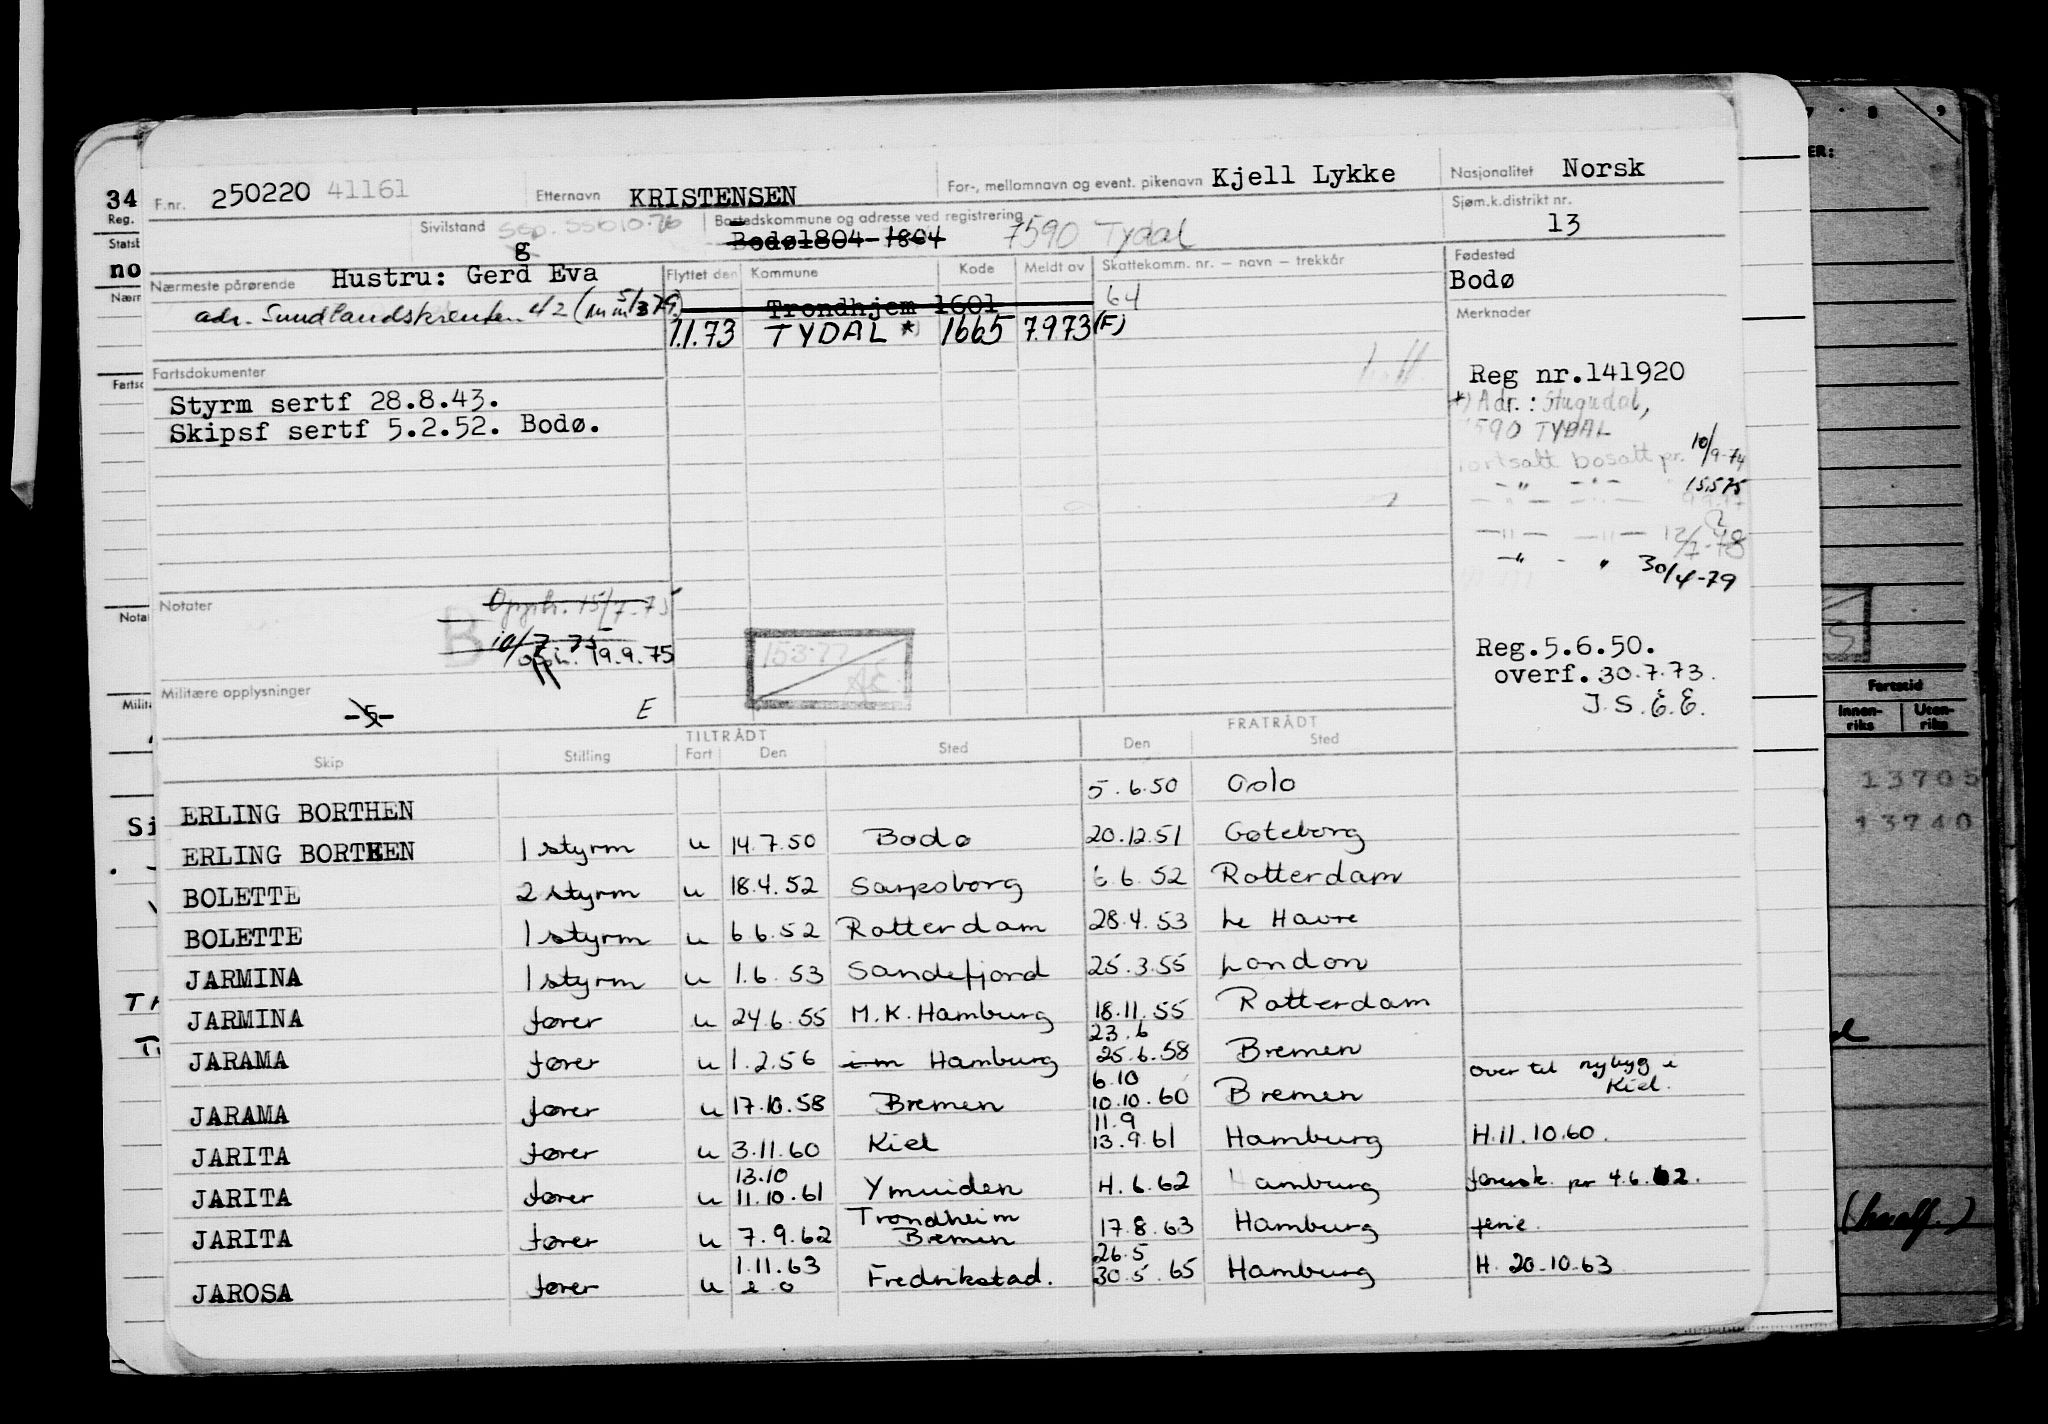 F.nr. 250220 41161 Etternavn KRISTENSEN For-, mellomnavn og event. pikenavn Kjell Lykke Nasjonalitet Norsk
Sivilstand g Bostedskommune og adresse ved registrering Bodø1804-1804 7590 Tydal Sjøm.k.distrikt nr. 13
Nærmeste pårørende Hustru: Gerd Eva Flyttet den Kommune Kode Meldt av Skattekomm. nr. – navn – trekkår Fødested
Bodø
adr. 42 Trondhjem 1601 64
1.1.73 TYDAL *) 1665 7.9.73 (F) Merknader
Fartsdokumenter
Styrm sertf 28.8.43.
Skipsf sertf 5.2.52. Bodø.
Reg nr.141920
*) Adr.: Stugudal,
7590 TYDAL
fortsatt bosatt pr. 10/9-74
-"- -"- 15.5.75
-"- -"- 12/7-78
-"- - " 30/4-79
Notater 15/7-75
B 10/7 75
19.9.75
15.3.77
Reg.5.6.50.
overf. 30.7.73.
J.S.E.E.
Militære opplysninger
-5- E
TILTRÅDT FRATRÅDT
Skip Stilling Fart Den Sted Den Sted
ERLING BORTHEN 5.6.50 Oslo
ERLING BORTHEN 1 styrm u 14.7.50 Bodø 20.12.51 Gøteborg
BOLETTE 2 styrm u 18.4.52 Sarpsborg 6.6.52 Rotterdam
BOLETTE 1 styrm u 6.6.52 Rotterdam 28.4.53 Le Havre
JARMINA 1 styrm u 1.6.53 Sandefjord 25.3.55 London
JARMINA fører u 24.6.55 M.K. Hamburg 18.11.55 Rotterdam
23.6
JARAMA fører u 1.2.56 i m Hamburg 25.6.58 Bremen
6.10 over til nybyg i
Kiel.
JARAMA fører u 17.10.58 Bremen 10.10.60 Bremen
11.9
JARITA fører u 3.11.60 Kiel 13.9.61 Hamburg H.11.10.60.
13.10
JARITA fører u 11.10.61 Ymuiden H.6.62 Hamburg pr 4.6.62.
Trondheim
JARITA fører u 7.9.62 Bremen 17.8.63 Hamburg ferie.
1.11.63 26.5
JAROSA fører u Fredrikstad. 30.5.65 Hamburg H. 20.10.63
34
Reg.
no
Innen-
riks
Uten-
riks
13705
13740